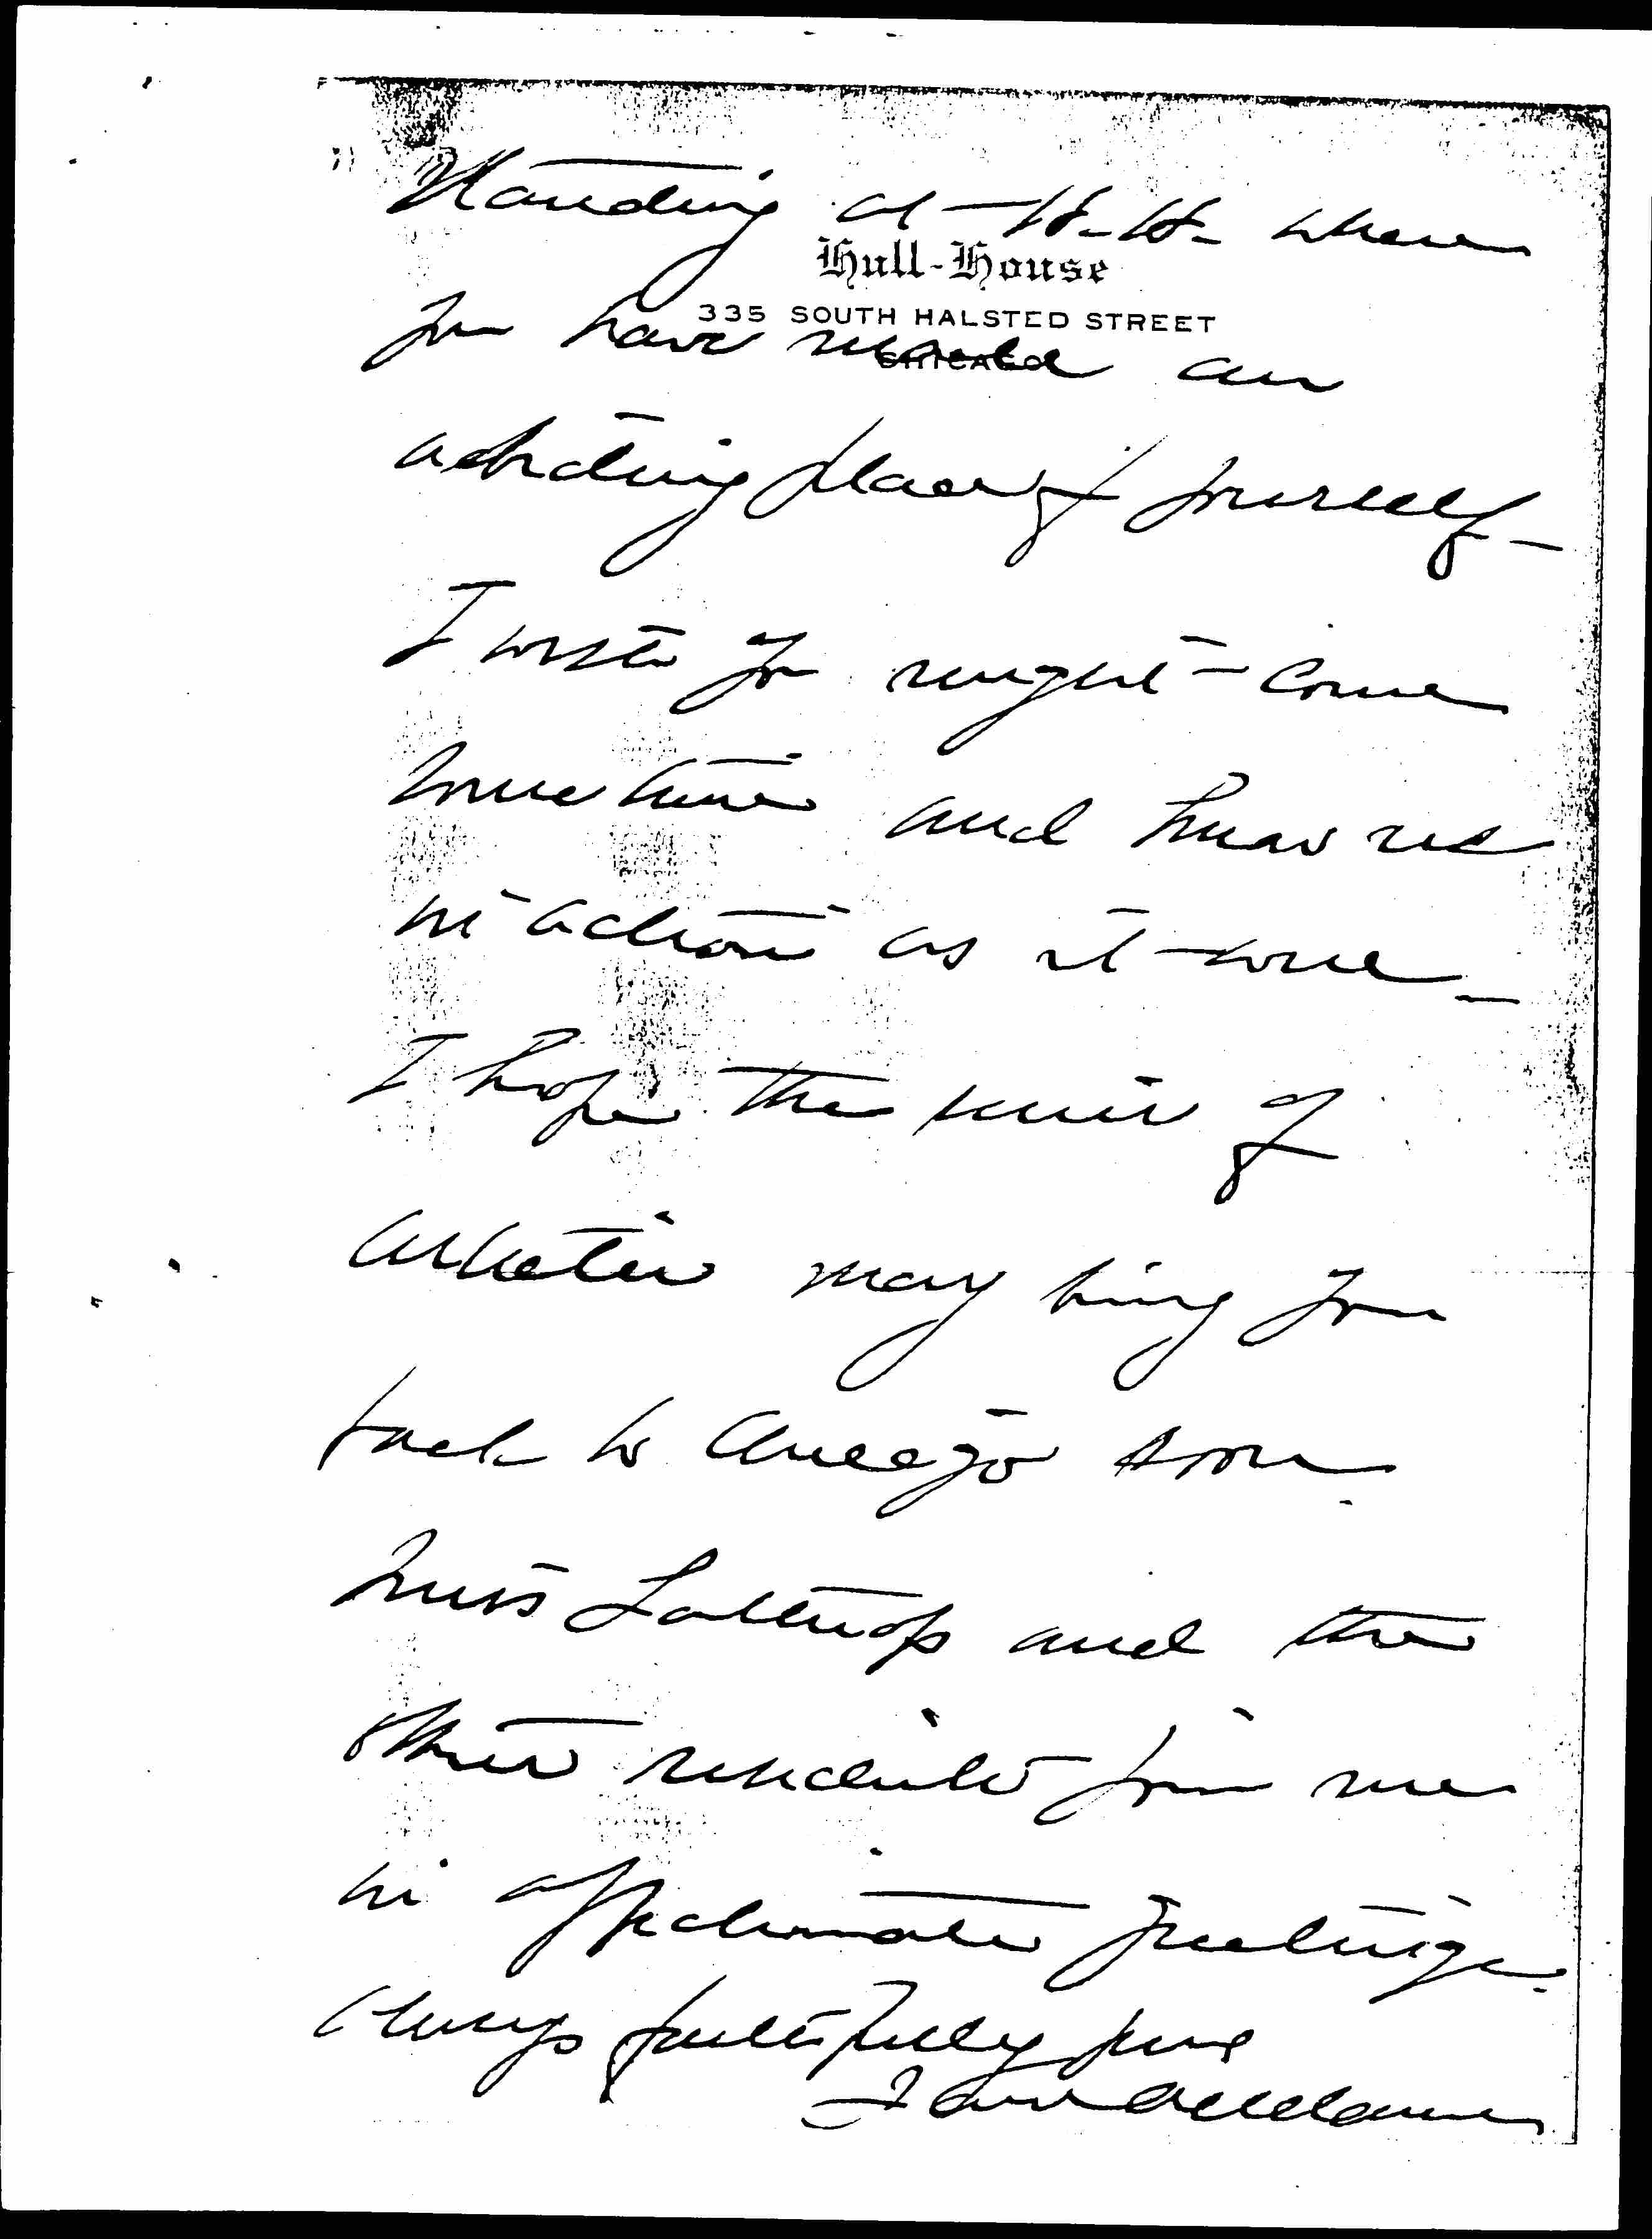 Standing at H. H. where
Hull-House
335 SOUTH HALSTED STREET
CHICAGO
you have made an
abiding place of yourself –
I wish you might come
some time and know us
in action as it were –
I hope the
may bring you
back to Chicago soon.
Miss Lathrop and the
other residents join me
in affectionate greetings.
Always faithfully yours
Jane Addams